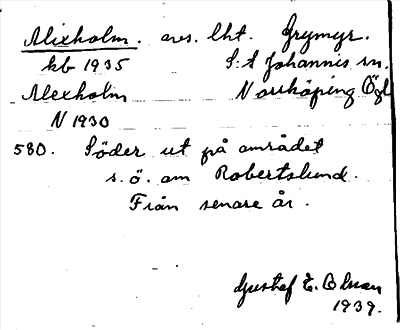 Alixholm. avs. lht. Grymyr.
kb 1935 S:t Johannis sn.
Alexholm Norrköping Ögl
N 1930
580. Söder ut på området
s. ö. om Robertslund.
Från senare år.
Gustaf E. Olsson
1939.